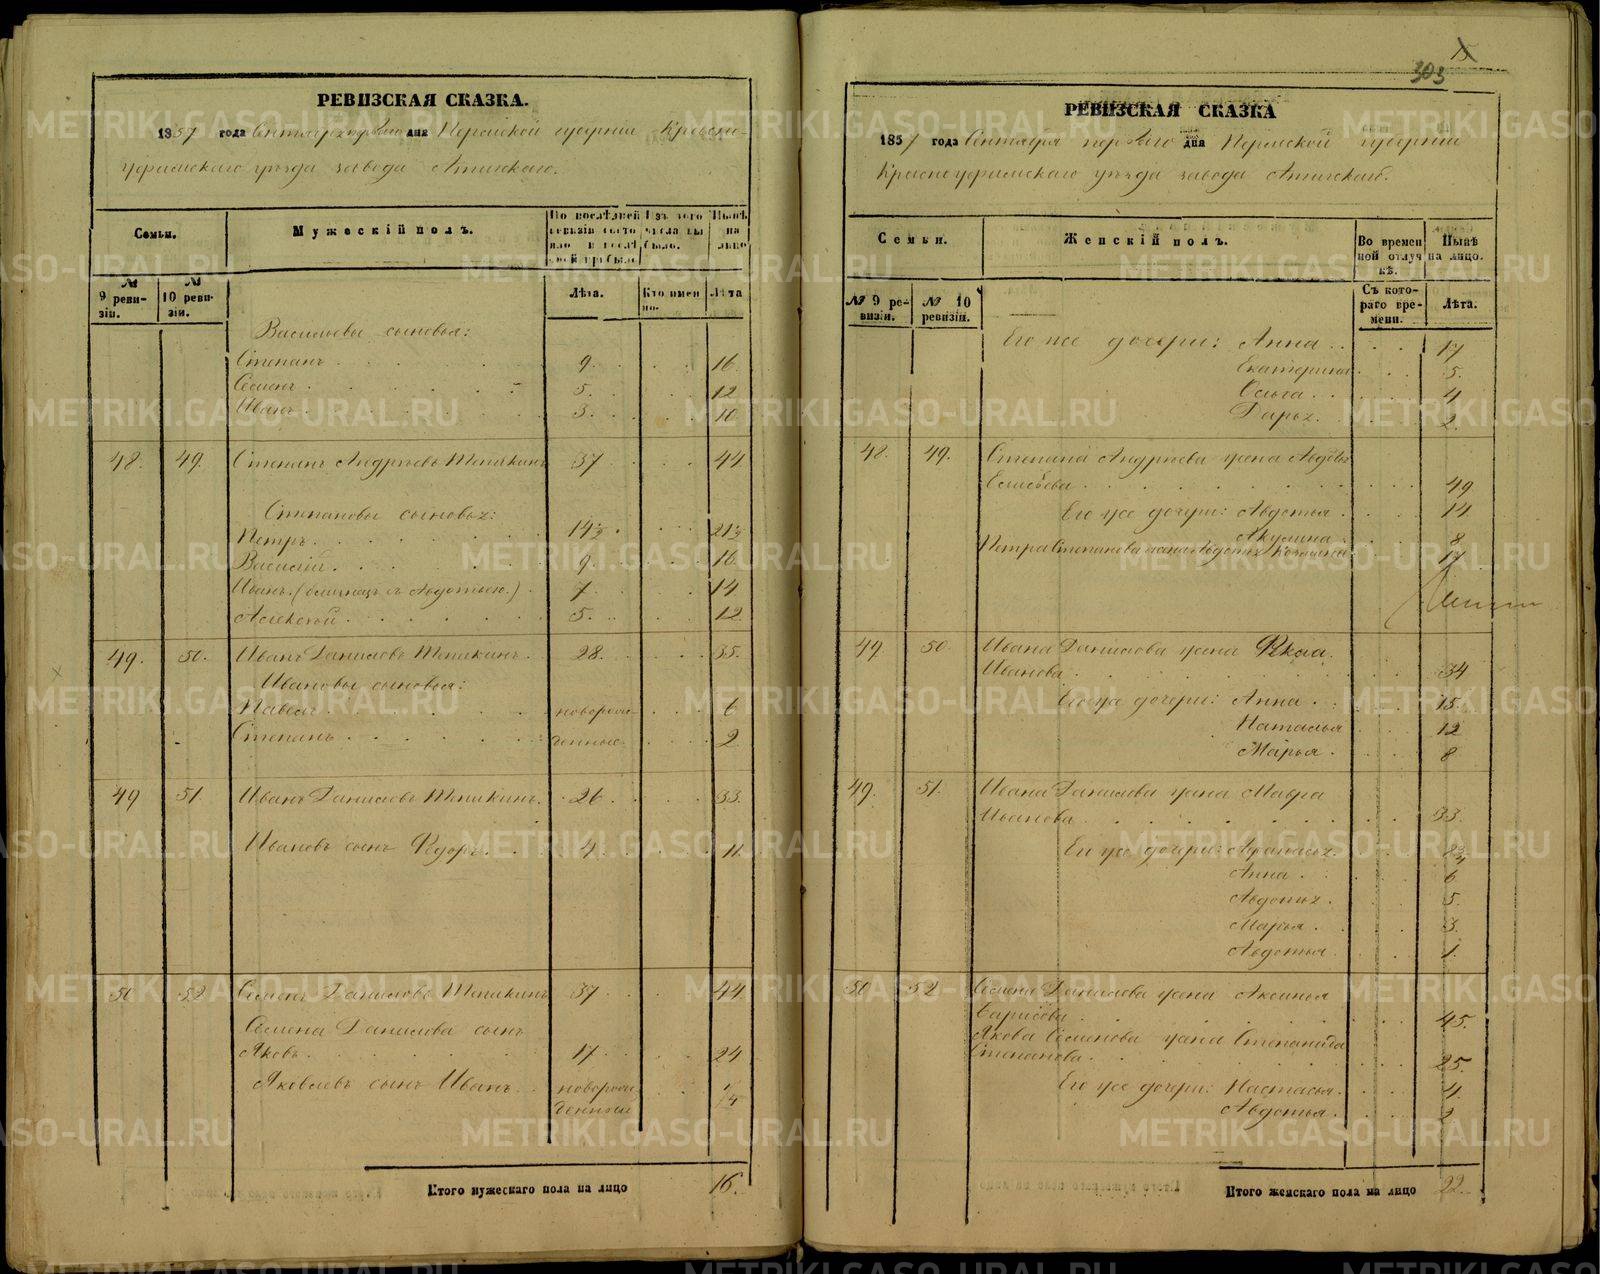 РЕВИЗСКАЯ СКАЗКА.
1857 года Сентября первого дня Пермской губернiи Красно-
уфимскаго уѣзда завода Атигскаго.
Семьи.
Мужескiй полъ.
По послѣдней ревизiи состояло и послѣ оной прибыло.
Изъ того числа выбыло.
Нынѣ на лицо
№ 9 ревизiи.
№ 10 ревизiи.
Лѣта.
Кто именно.
Лѣта
Васильевы сыновья:
Степанъ 9. 16
Семенъ 5. 12
Иванъ 3. 10
48. 49. Степанъ Андреевъ 37 44
Степановы сыновья:
Петръ 14½ 21½
Василiй 9. 16
Иванъ (близнецъ съ Авдотьею.) 7 14
Алексѣй 5. 12
49. 50. Иванъ Даниловъ 28. 35.
Ивановы сыновья:
Павелъ новорож- 6
Степанъ денные 2
49 51. Иванъ Даниловъ 26 33.
Ивановъ сынъ Федоръ 4 11.
50 52 Семенъ Даниловъ 37 44
Семена Данилова сынъ
Яковъ 17 24
Яковлевъ сынъ Иванъ новорож-
денный
Итого мужескаго пола на лицо 16.
303
РЕВИЗСКАЯ СКАЗКА
1857 года Сентября первого дня Пермской губернiи
Красноуфимскаго уѣзда завода Атигскаго.
Семьи.
Женскiй полъ.
Во временной отлучкѣ.
Нынѣ на лицо.
№ 9 ревизiи.
№ 10 ревизiи.
Съ котораго времени.
Лѣта.
Его же дочери: Анна 17
Екатерина 5.
Ольга 4
Дарья 2.
48. 49. Степана Андреева жена
Елисѣева 49
Его же дочери: Авдотья 14
Акулина 8
Петра Степанова жена Авдотья 17
49 50 Ивана Данилова жена Фекла
Иванова 34
Его же дочери: Анна 15.
Наталья 12
Марья 8
49. 51. Ивана Данилова жена Мавра
Иванова 33.
Его же дочери: Афанасья
Анна 6
Авдотья 5.
Марья 3.
Авдотья 1.
50 52 Семена Данилова жена Аксинья
Борисова 45.
Якова Семенова жена Степанида
Степанова 25.
Его же дочери: Настасья 4.
Авдотья 2
Итого женскаго пола на лицо 22
METRIKI.GASO-URAL.RU